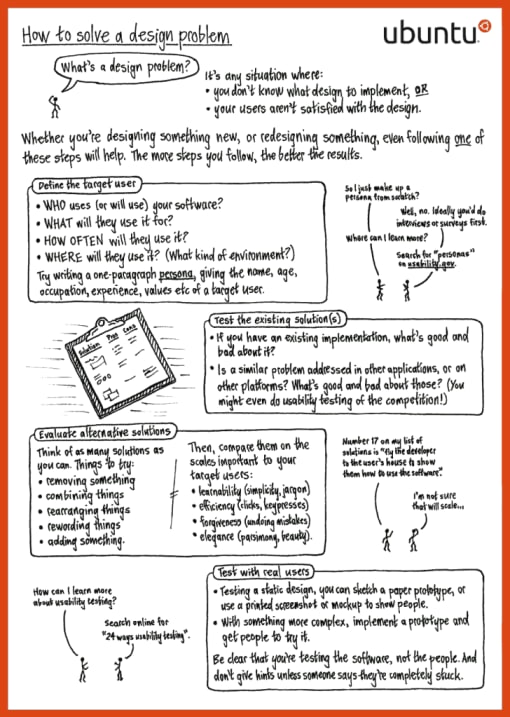 How to solve a design problem
ubuntu
What's a design problem?
It's any situation where:
• you don't know what design to implement, OR
• your users aren't satisfied with the design.
Whether you're designing something new, or redesigning something, even following one of
these steps will help. The more steps you follow, the better the results.
Define the target user
• WHO uses (or will use) your software?
• WHAT will they use it for?
• HOW OFTEN will they use it?
• WHERE will they use it? (What kind of environment?)
Try writing a one-paragraph persona, giving the name, age,
occupation, experience, values etc of a target user.
So I just make up a
persona from scratch?
Well, no. Ideally you'd do
interviews or surveys first.
Where can I learn more?
Search for "personas"
on usability.gov.
Solution Pros Cons
Test the existing solution(s)
• If you have an existing implementation, what's good and
bad about it?
• Is a similar problem addressed in other applications, or on
other platforms? What's good and bad about those? (You
might even do usability testing of the competition!)
Evaluate alternative solutions
Think of as many solutions as
you can. Things to try:
• removing something
• combining things
• rearranging things
• rewording things
• adding something.
Then, compare them on the
scales important to your
target users:
• learnability (simplicity, jargon)
• efficiency (clicks, keypresses)
• forgiveness (undoing mistakes)
• elegance (parsimony, beauty).
Number 17 on my list of
solutions is "fly the developer
to the user's house to show
them how to use the software".
I'm not sure
that will scale...
Test with real users
• Testing a static design, you can sketch a paper prototype, or
use a printed screenshot or mockup to show people.
• With something more complex, implement a prototype and
get people to try it.
Be clear that you're testing the software, not the people. And
don't give hints unless someone says they're completely stuck.
How can I learn more
about usability testing?
Search online for
"24 ways usability testing".